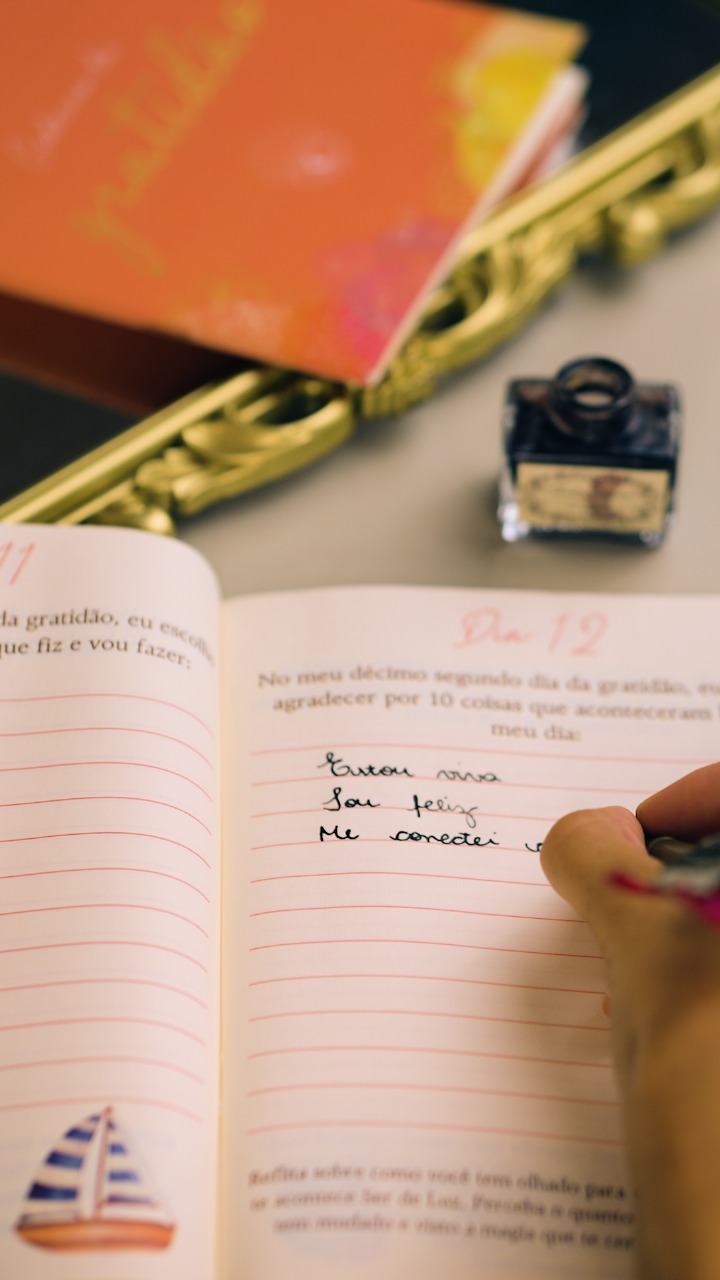 gratidão
11
da gratidão, eu escolho
que fiz e vou fazer:
Dia 12
No meu décimo segundo dia da gratidão, eu
agradecer por 10 coisas que aconteceram
meu dia:
Estou viva
Sou feliz
Me conectei
Reflita sobre como você tem olhado para
te acontece Ser de Luz. Perceba o quanto
tem mudado e visto a magia que te